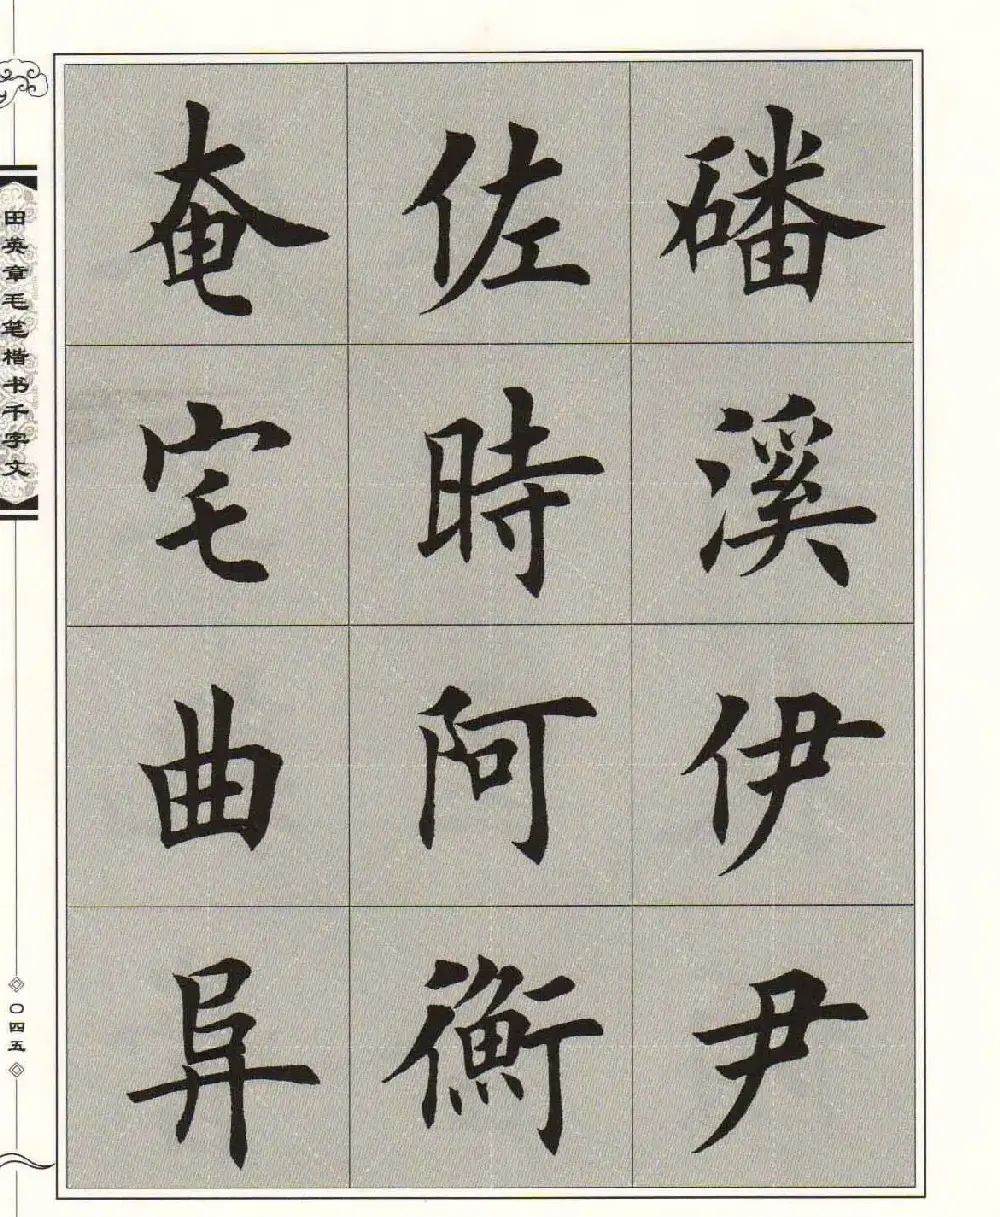 磻溪伊尹
佐時阿衡
奄宅曲阜
田英章毛笔楷书千字文
〇四五